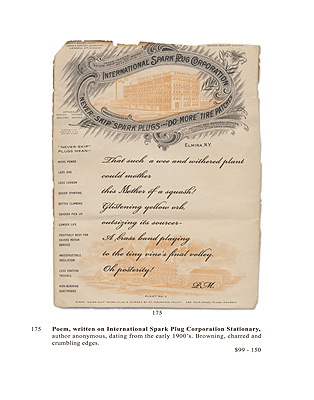 INTERNATIONAL SPARK PLUG CORPORATION
"NEVER-SKIP" SPARK PLUGS AND "DO-MORE" TIRE PATCHES
ELMIRA, N.Y.
"NEVER-SKIP"
PLUGS MEAN—
MORE POWER
LESS GAS
LESS CARBON
EASIER STARTING
BETTER CLIMBING
QUICKER PICK UP
LONGER LIFE
POSITIVELY BEST FOR
SEVERE MOTOR
SERVICE
INDESTRUCTIBLE
INSULATION
LESS IGNITION
TROUBLE
NON-BURNING
ELECTRODES
That such a wee and withered plant
could mother
this Mother of a squash!
Glistening yellow orb,
outsizing its source-
A brass band playing
to the tiny vine's final volley.
Oh posterity!
P.M.
PLANT No. 2
175
175 Poem, written on International Spark Plug Corporation Stationary,
author anonymous, dating from the early 1900's. Browning, charred and
crumbling edges.
$99 - 150